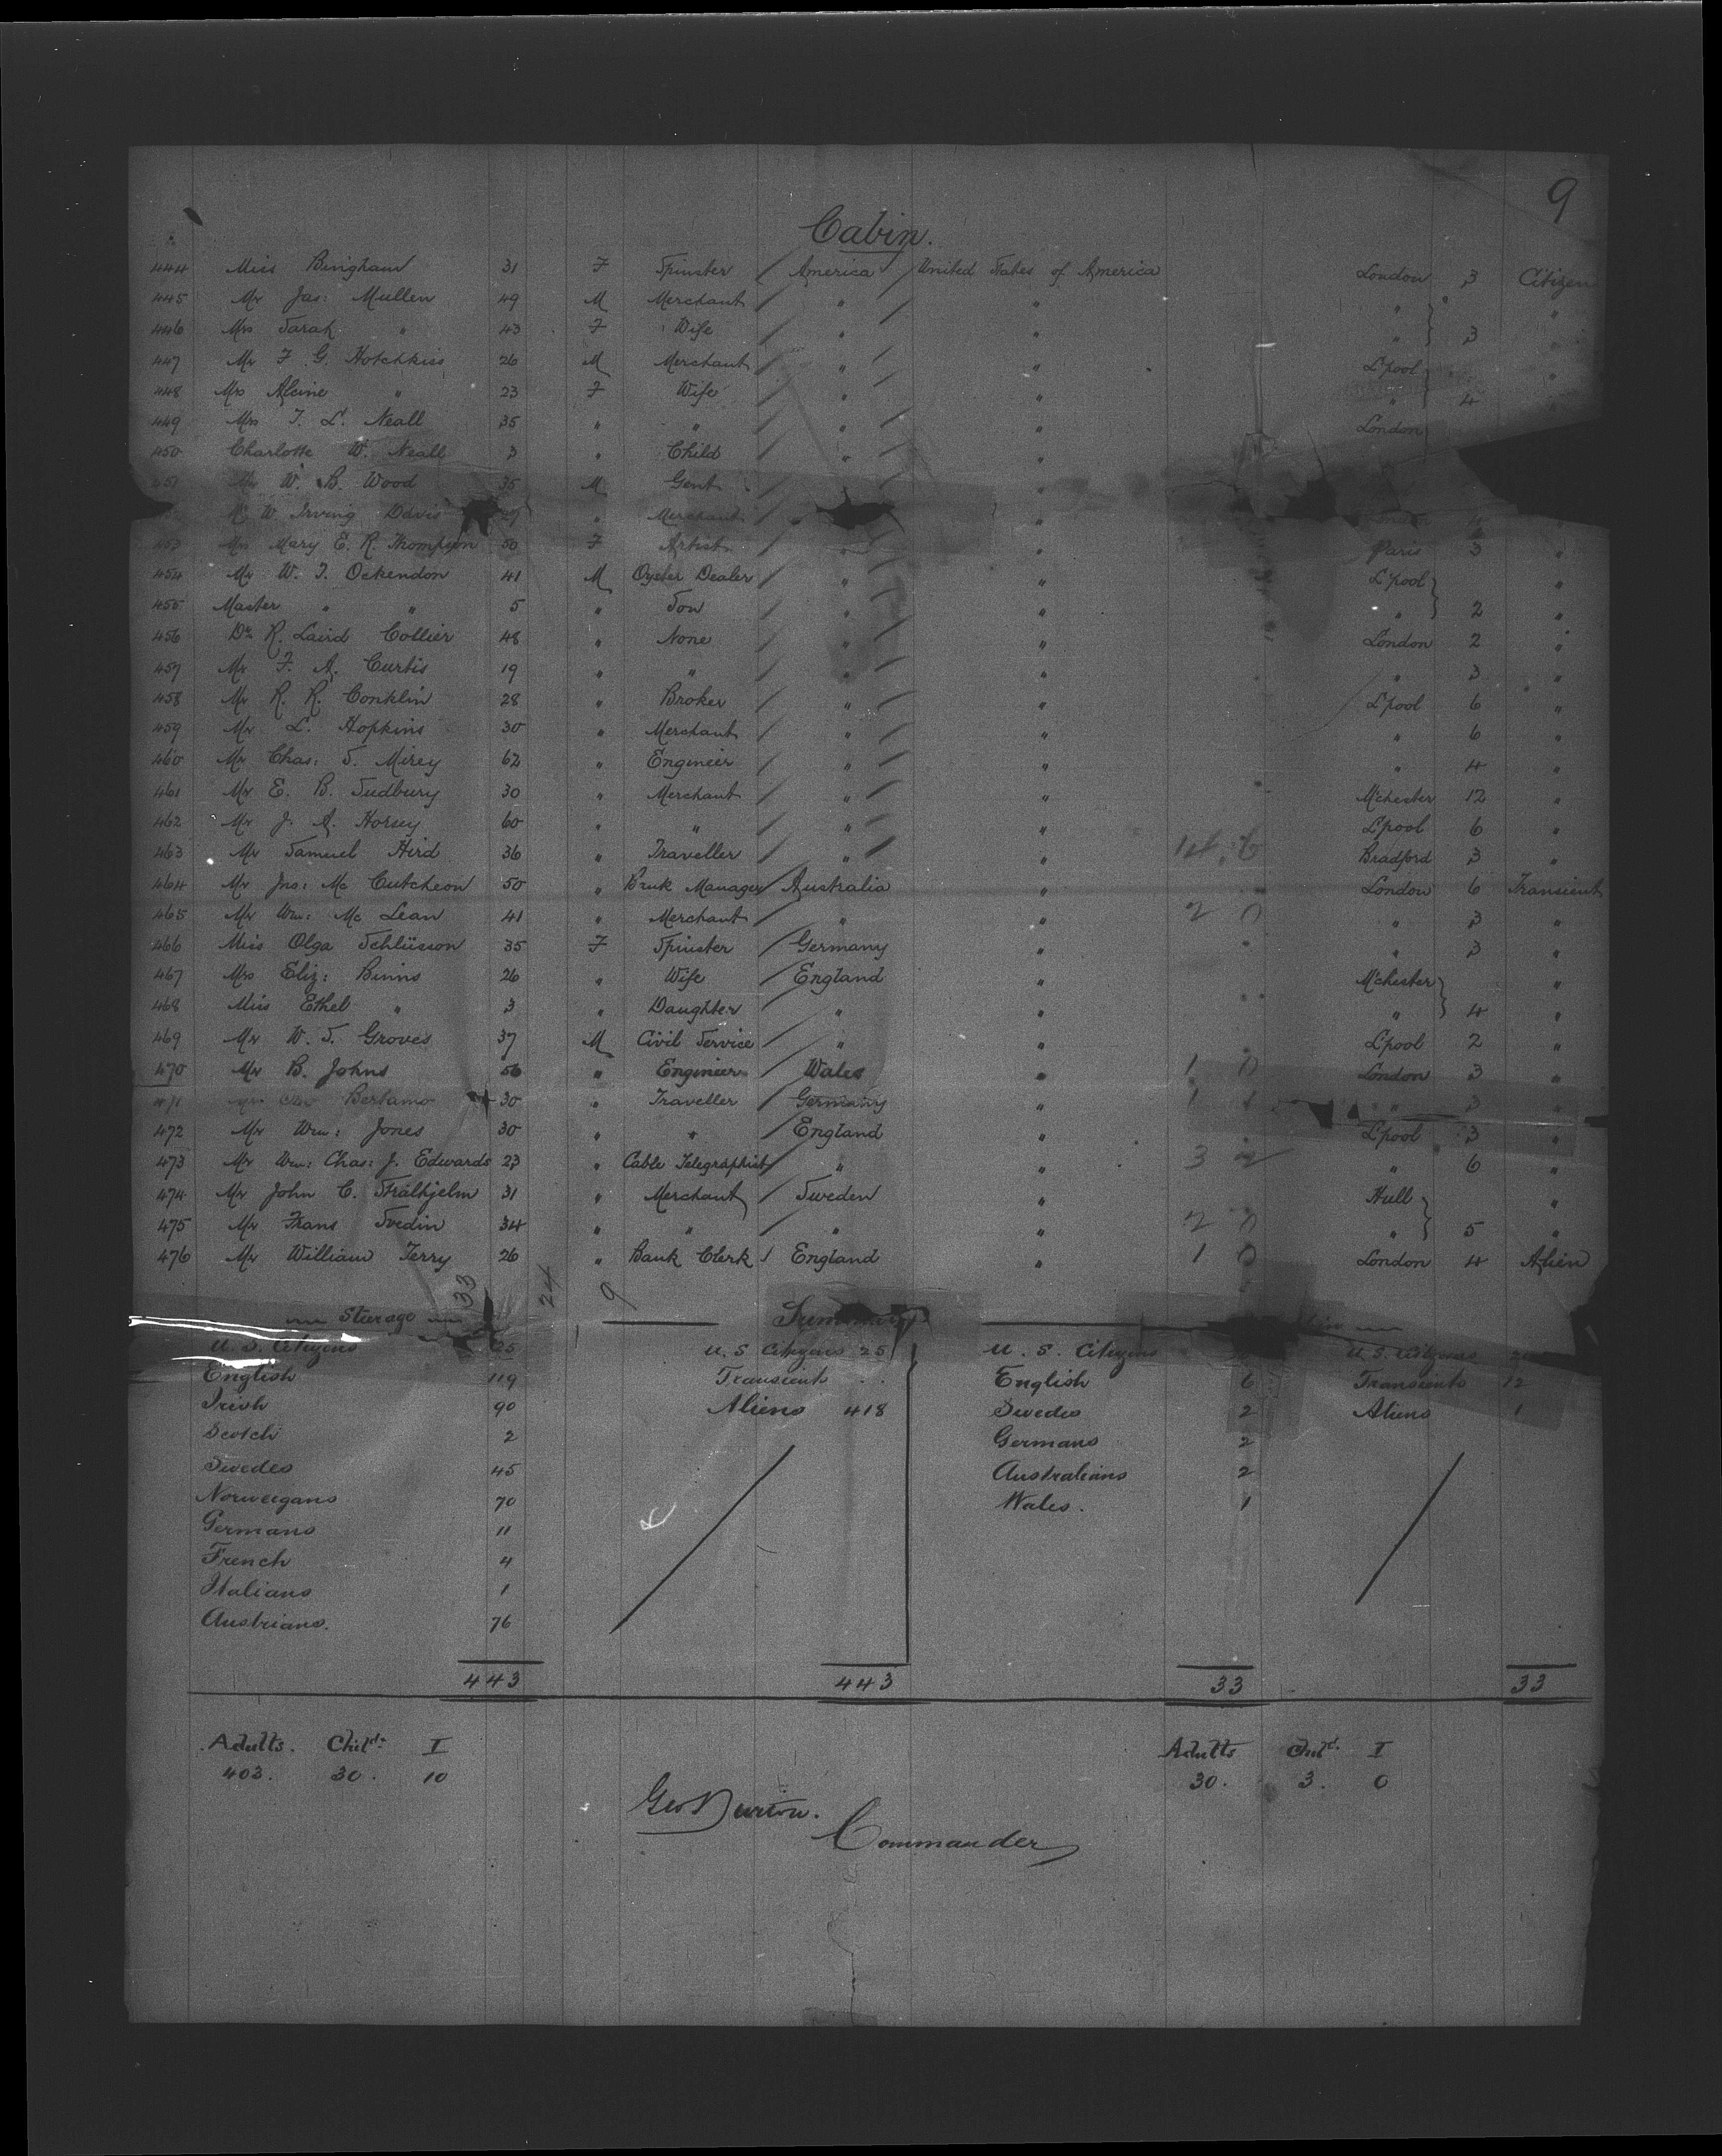 9
Cabin.
444 Miss Bingham 31 F Spinster America United States of America London 3 Citizen
445 Mr Jas: Mullen 49 M Merchant " " " "
446 Mrs Sarah " 43 F Wife " " " 3 "
447 Mr F. G. Hotchkiss 26 M Merchant " " L'pool "
448 Mrs Alcine " 23 F Wife " " " 4
449 Mrs T. L. Neall 35 " " " " London
450 Charlotte W. Neall 3 " Child " "
451 Mr W. B. Wood 35 M Gent "
Mr W. Irving Davis " Merchant " "
453 Mrs Mary E. R. Thompson 50 F Artist " " Paris 3 "
454 Mr W. T. Ockendon 41 M Oyster Dealer " " L'pool "
455 Master " " 5 " Son " " " 2 "
456 Dr R. Laird Collier 48 " None " " London 2 "
457 Mr F. A. Curtis 19 " " " " " 3 "
458 Mr R. R. Conklin 28 " Broker " " L'pool 6 "
459 Mr L. Hopkins 30 " Merchant " " " 6 "
460 Mr Chas: S. Mirey 62 " Engineer " " " 4 "
461 Mr E. B. Sudbury 30 " Merchant " " M'chester 12 "
462 Mr J. A. Horsey 60 " " " " L'pool 6 "
463 Mr Samuel Hird 36 " Traveller " " Bradford 3 "
464 Mr Jno: Mc Cutcheon 50 " Bank Manager Australia " London 6 Transient
465 Mr Wm: Mc Lean 41 " Merchant " " 2 0 " 3 "
466 Miss Olga Schlüsson 35 F Spinster Germany " " 3 "
467 Mrs Eliz: Binns 26 " Wife England " M'chester "
468 Miss Ethel " 3 " Daughter " " " 4 "
469 Mr W. S. Groves 37 M Civil Service " " L'pool 2 "
470 Mr B. Johns 56 " Engineer Wales " 1 0 London 3 "
471 Bertamo 30 " Traveller Germany " 1 " 3 "
472 Mr Wm: Jones 30 " " England " L'pool 3 "
473 Mr Wm: Chas: J. Edwards 23 " Cable Telegraphist " " 3 " 6 "
474 Mr John C. Strålhjelm 31 " Merchant Sweden " Hull "
475 Mr Frans Svedin 34 " " " " 2 0 " 5 "
476 Mr William Terry 26 " Bank Clerk England " 1 0 London 4 Alien
33 24 9
Steerage Summary
U. S. Citizens 25 U. S Citizens 25 U. S. Citizens U. S. Citizens
English 119 Transient English 6 Transients 12
Irish 90 Aliens 418 Swedes 2 Aliens 1
Scotch 2 Germans 2
Swedes 45 Australians 2
Norweigans 70 Wales. 1
Germans 11
French 4
Italians 1
Austrians. 76
443 443 33 33
Adults. Child: I Adults Child. I
403. 30. 10 30. 3. 0
Geo Burton.
Commander